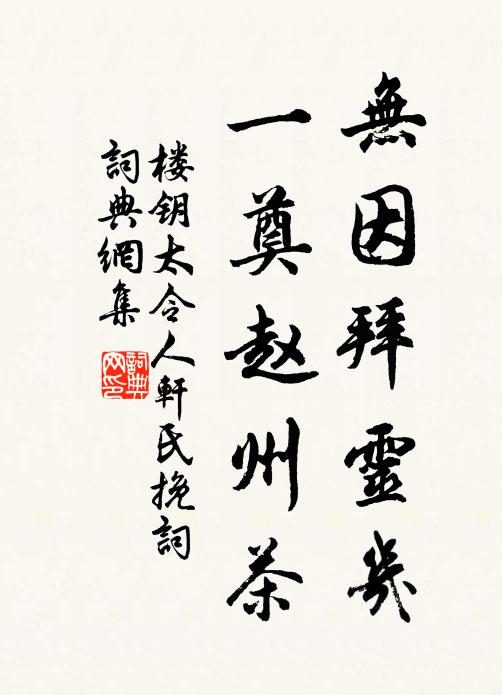 無因拜靈幾
一奠赵州茶
楼钥太令人軒氏挽詞
詞典網集
詞典
网印